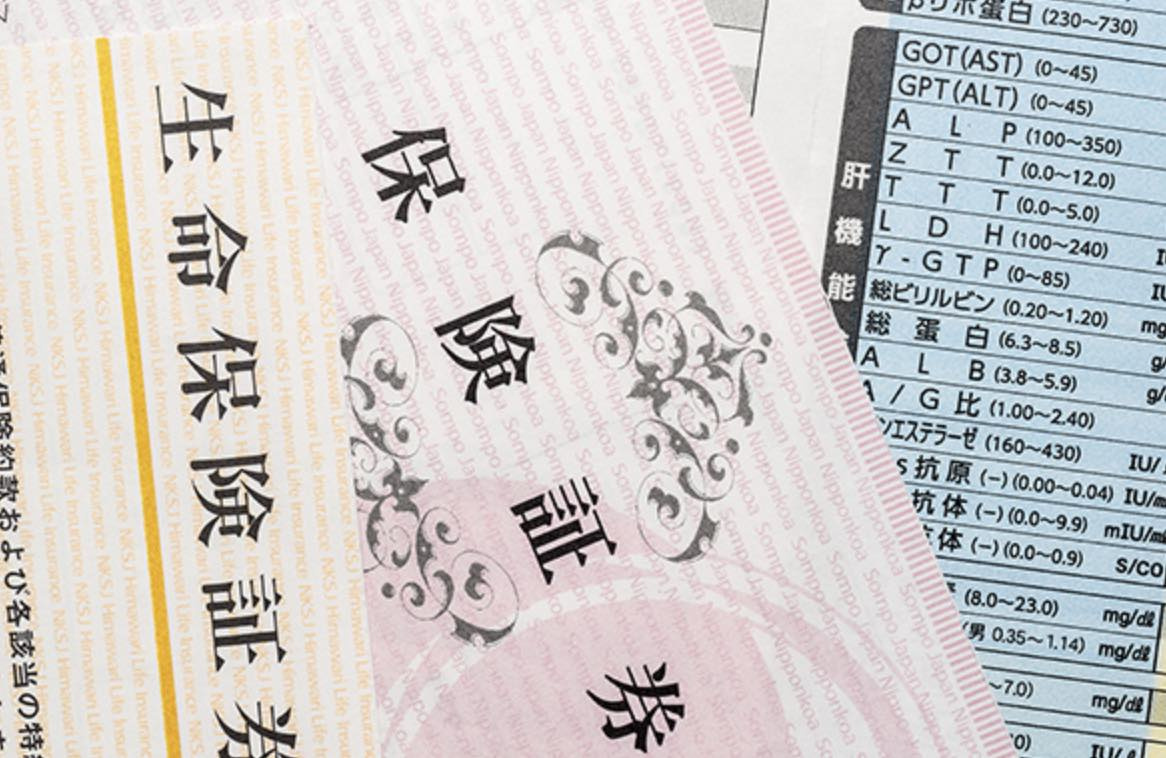 生命保険証券
普通保険約款および各該当の特
保険証券
NKSJ Himawari Life Insurance
Sompo Japan Nipponkoa
リポ蛋白 (230~730)
肝機能
GOT(AST) (0~45)
GPT(ALT) (0~45)
ALP (100~350)
ZTT (0.0~12.0)
TTT (0.0~5.0)
LDH (100~240)
γ-GTP (0~85)
総ビリルビン (0.20~1.20) mg
総蛋白 (6.3~8.5) g/
ALB (3.8~5.9) g/
A/G比 (1.00~2.40)
ンエステラーゼ (160~430) IU/
s抗原 (-) (0.00~0.04) IU/m
抗体 (-) (0.0~9.9) mIU/mℓ
体 (-) (0.0~0.9) s/co
(8.0~23.0) mg/dℓ
(男 0.35~1.14) mg/dℓ
~7.0) mg/dℓ
0) IU/ℓ